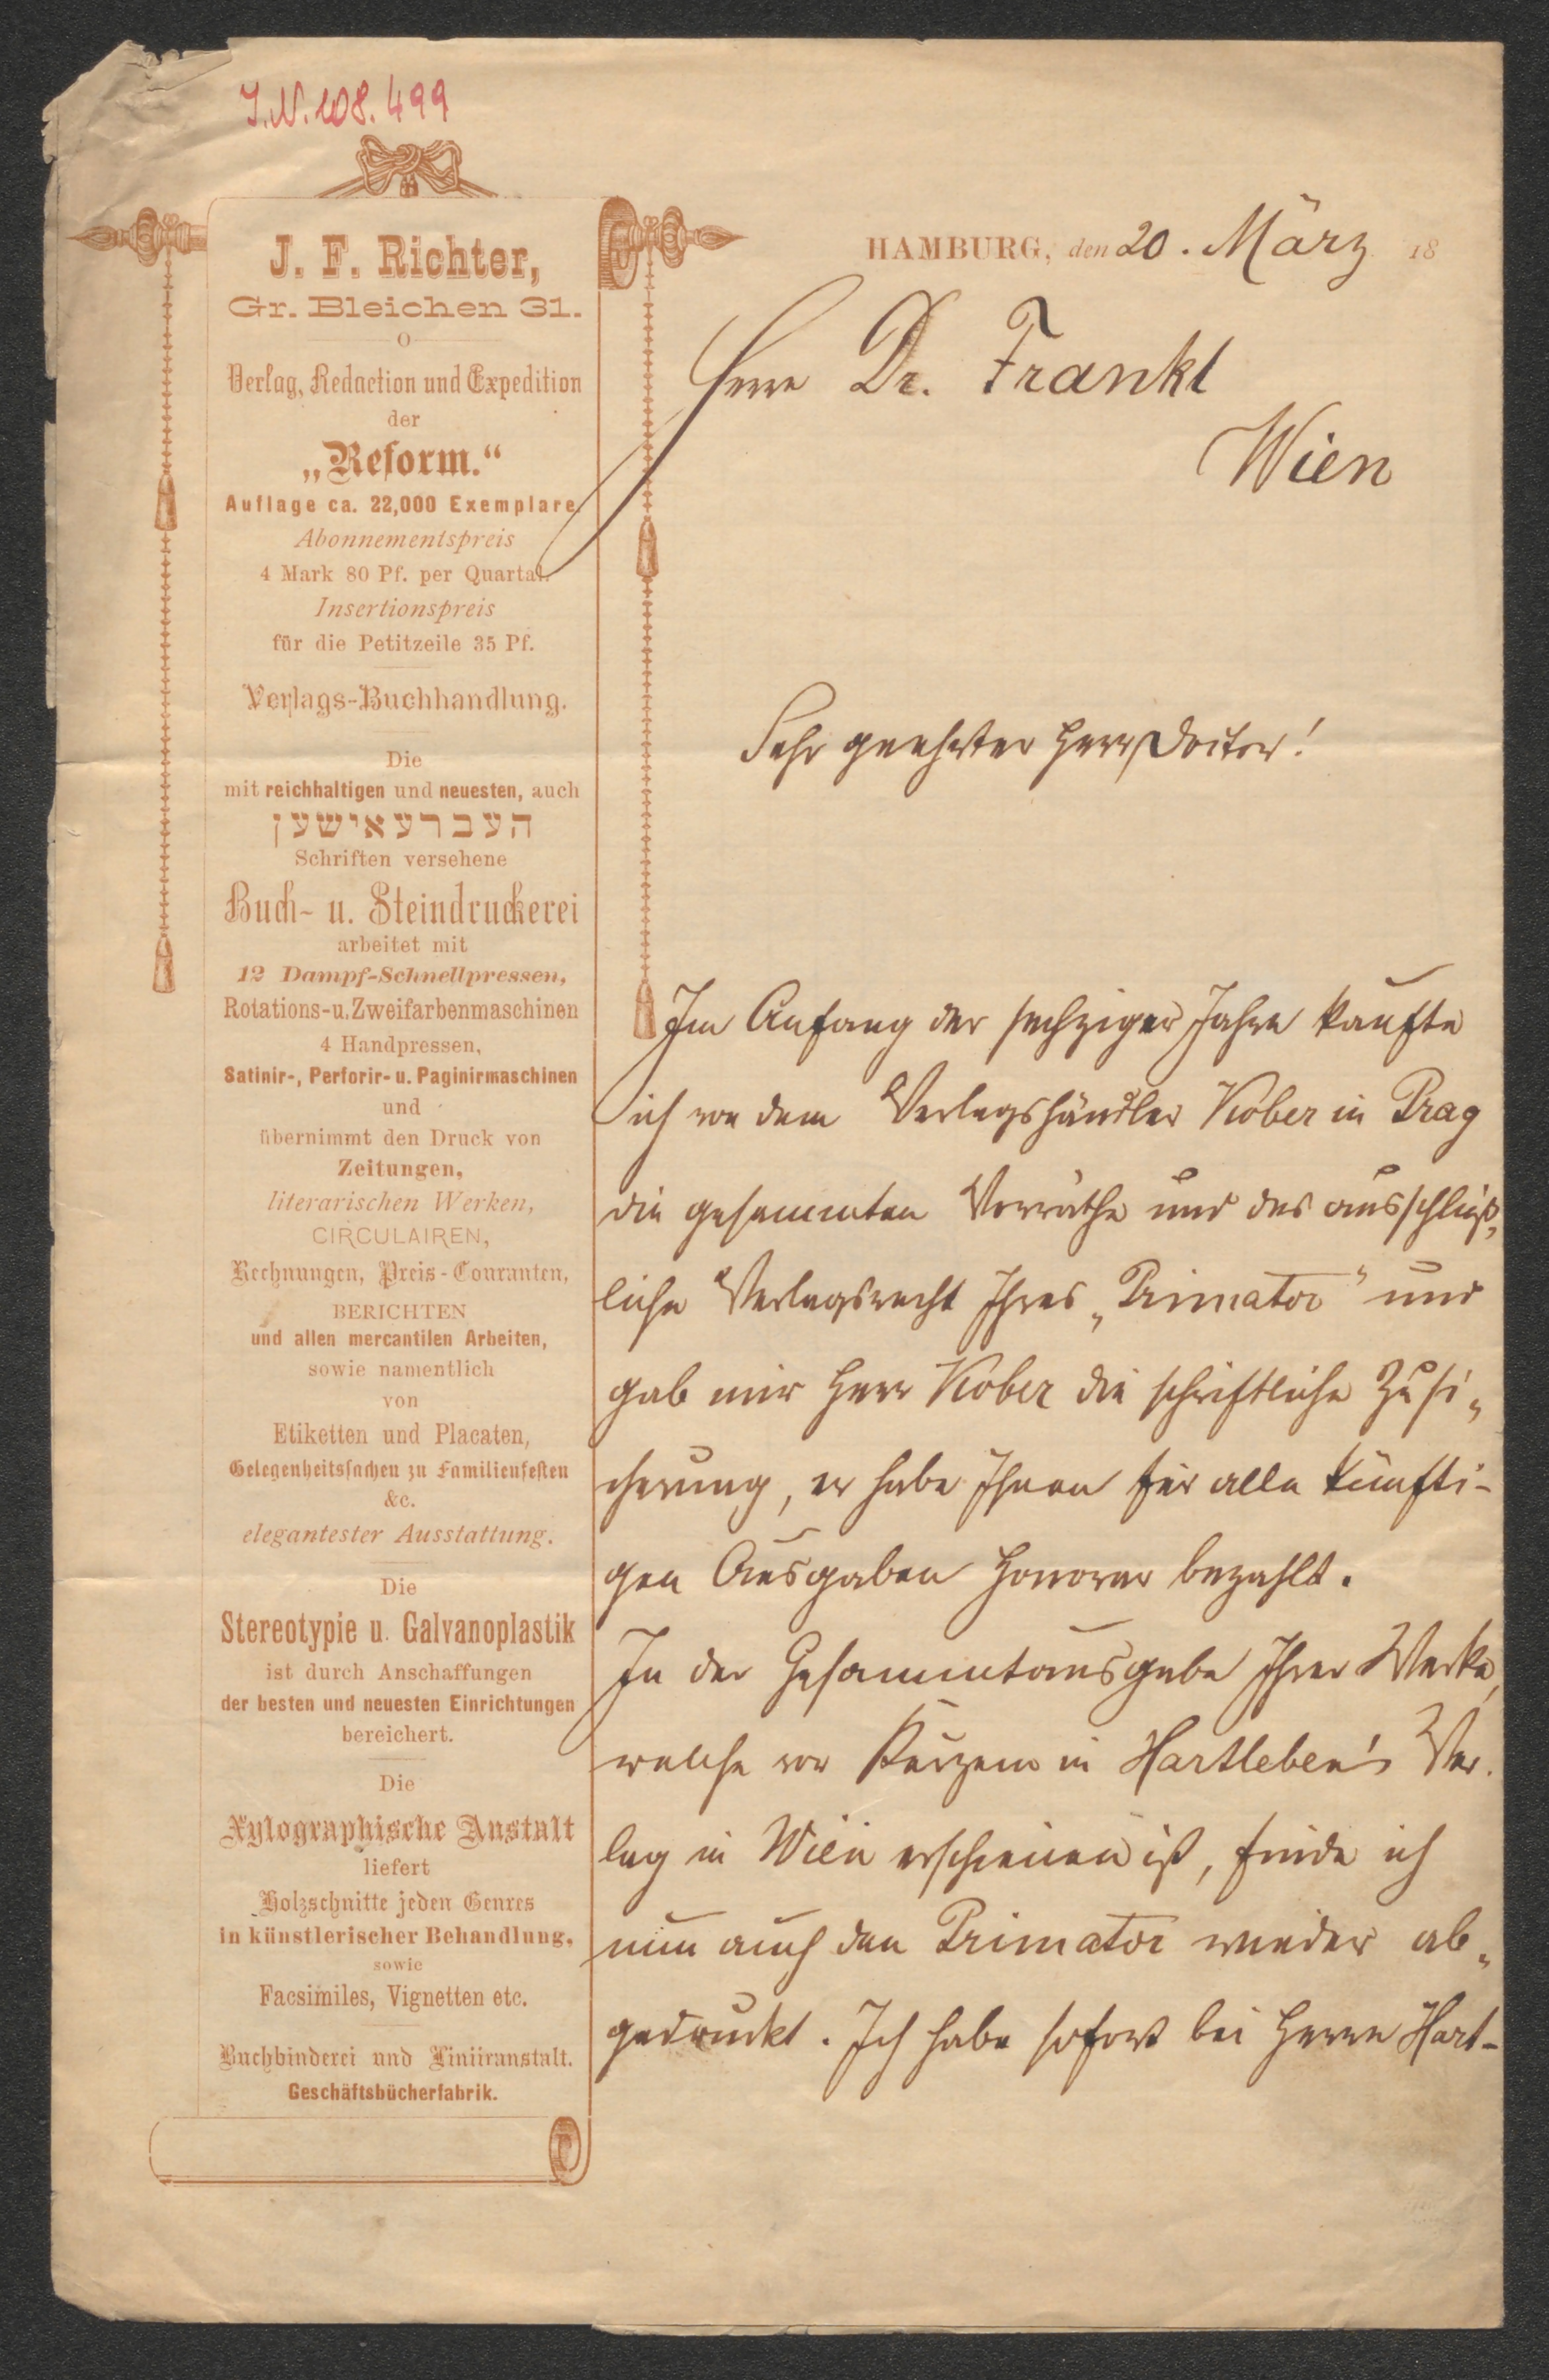 I.N. 108.499
J. F. Richter,
Gr. Bleichen 31.
Verlag, Redaction und Expedition
der
„Reform.“
Auflage ca. 22,000 Exemplare.
Abonnementspreis
4 Mark 80 Pf. per Quartal.
Insertionspreis
für die Petitzeile 35 Pf.
Verlags-Buchhandlung.
Die
mit reichhaltigen und neuesten, auch
העברעאישען
Schriften versehene
Buch- u. Steindruckerei
arbeitet mit
12 Dampf-Schnellpressen,
Rotations- u. Zweifarbenmaschinen
4 Handpressen,
Satinir-, Perforir- u. Paginirmaschinen
und
übernimmt den Druck von
Zeitungen,
literarischen Werken,
CIRCULAIREN,
Rechnungen, Preis-Couranten,
BERICHTEN
und allen mercantilen Arbeiten,
sowie namentlich
von
Etiketten und Placaten,
Gelegenheitssachen zu Familienfesten
&c.
elegantester Ausstattung.
Die
Stereotypie u. Galvanoplastik
ist durch Anschaffungen
der besten und neuesten Einrichtungen
bereichert.
Die
Xylographische Anstalt
liefert
Holzschnitte jeden Genres
in künstlerischer Behandlung,
sowie
Facsimiles, Vignetten etc.
Buchbinderei und Liniiranstalt.
Geschäftsbücherfabrik.
HAMBURG, den 20. März 18
Herrn Dr. Frankl
Wien
Sehr geehrter Herr Doctor!
Im Anfang der sechziger Jahre kaufte
ich von dem Verlagshändler Kober in Prag
die gesammten Vorräthe und das ausschließ„
liche Verlagsrecht Ihres „Primator“ und
gab mir Herr Kober die schriftliche Zusi„
cherung, er habe Ihnen für alle künfti-
gen Ausgaben Honorar bezahlt.
In der Gesammtausgabe Ihrer Werke,
welche vor Kurzem in Hartleben's Ver.
lag in Wien erschienen ist, finde ich
nun auch den Primator wieder ab„
gedruckt. Ich habe sofort bei Herrn Hart-